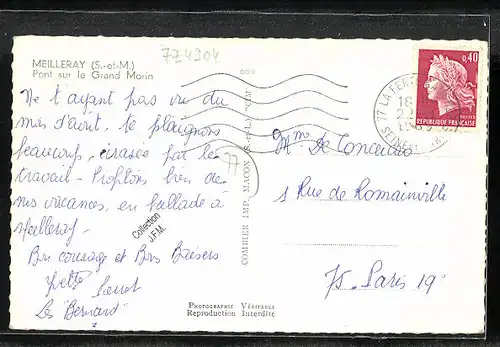 MEILLERAY (S.-et-M.)
Pont sur le Grand Morin
774904
Ne t'ayant pas vu du
mois d'août, te plaignons
beaucoup, écrasée par le
travail - Profitons bien de
nos vacances, en ballade à
Meilleray -
Bon courage et Bons Baisers
Yvette
Les "Bernard"
77
Collection
J.F.M.
COMBIER IMP. MACON (S.-et-L.) "CIM"
PHOTOGRAPHIE VÉRITABLE
Reproduction Interdite
0,40
POSTES
REPUBLIQUE FRANÇAISE
77 LA FER
18
Mme De
1 Rue de Romainville
75 - Paris 19e